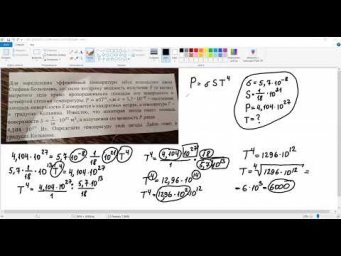 Для определения эффективной температуры звёзд используют закон
Стефана–Больцмана, согласно которому мощность излучения P (в ваттах)
нагретого тела прямо пропорциональна площади его поверхности и
четвёртой степени температуры: P = σST⁴, где σ = 5,7 · 10⁻⁸ –
площадь поверхности S измеряется в квадратных метрах, а температура T –
в градусах Кельвина. Известно, что некоторая звезда имеет
площадь поверхности S = 1/18 · 10²¹ м², а излучаемая ею мощность P равна
4,104 · 10²⁷ Вт. Определите температуру этой звезды. Дайте ответ в
градусах Кельвина.
P = σST⁴
σ = 5,7·10⁻⁸
S = 1/18 · 10²¹
P = 4,104·10²⁷
T = ?
4,104·10²⁷ = 5,7·10⁻⁸ · 1/18 · 10²¹ T⁴
5,7 · 1/18 · 10¹³ T⁴ = 4,104·10²⁷
T⁴ = 4,104·10²⁷/1 : 5,7·10¹³/18
T⁴ = 4,104·10²⁷·18 / 1·5,7·10¹³
T⁴ = 12,96·10¹⁴
T⁴ = 1296·10¹²
T⁴ = 1296·10¹²
T = ⁴√1296·10¹² =
= 6·10³ = 6000